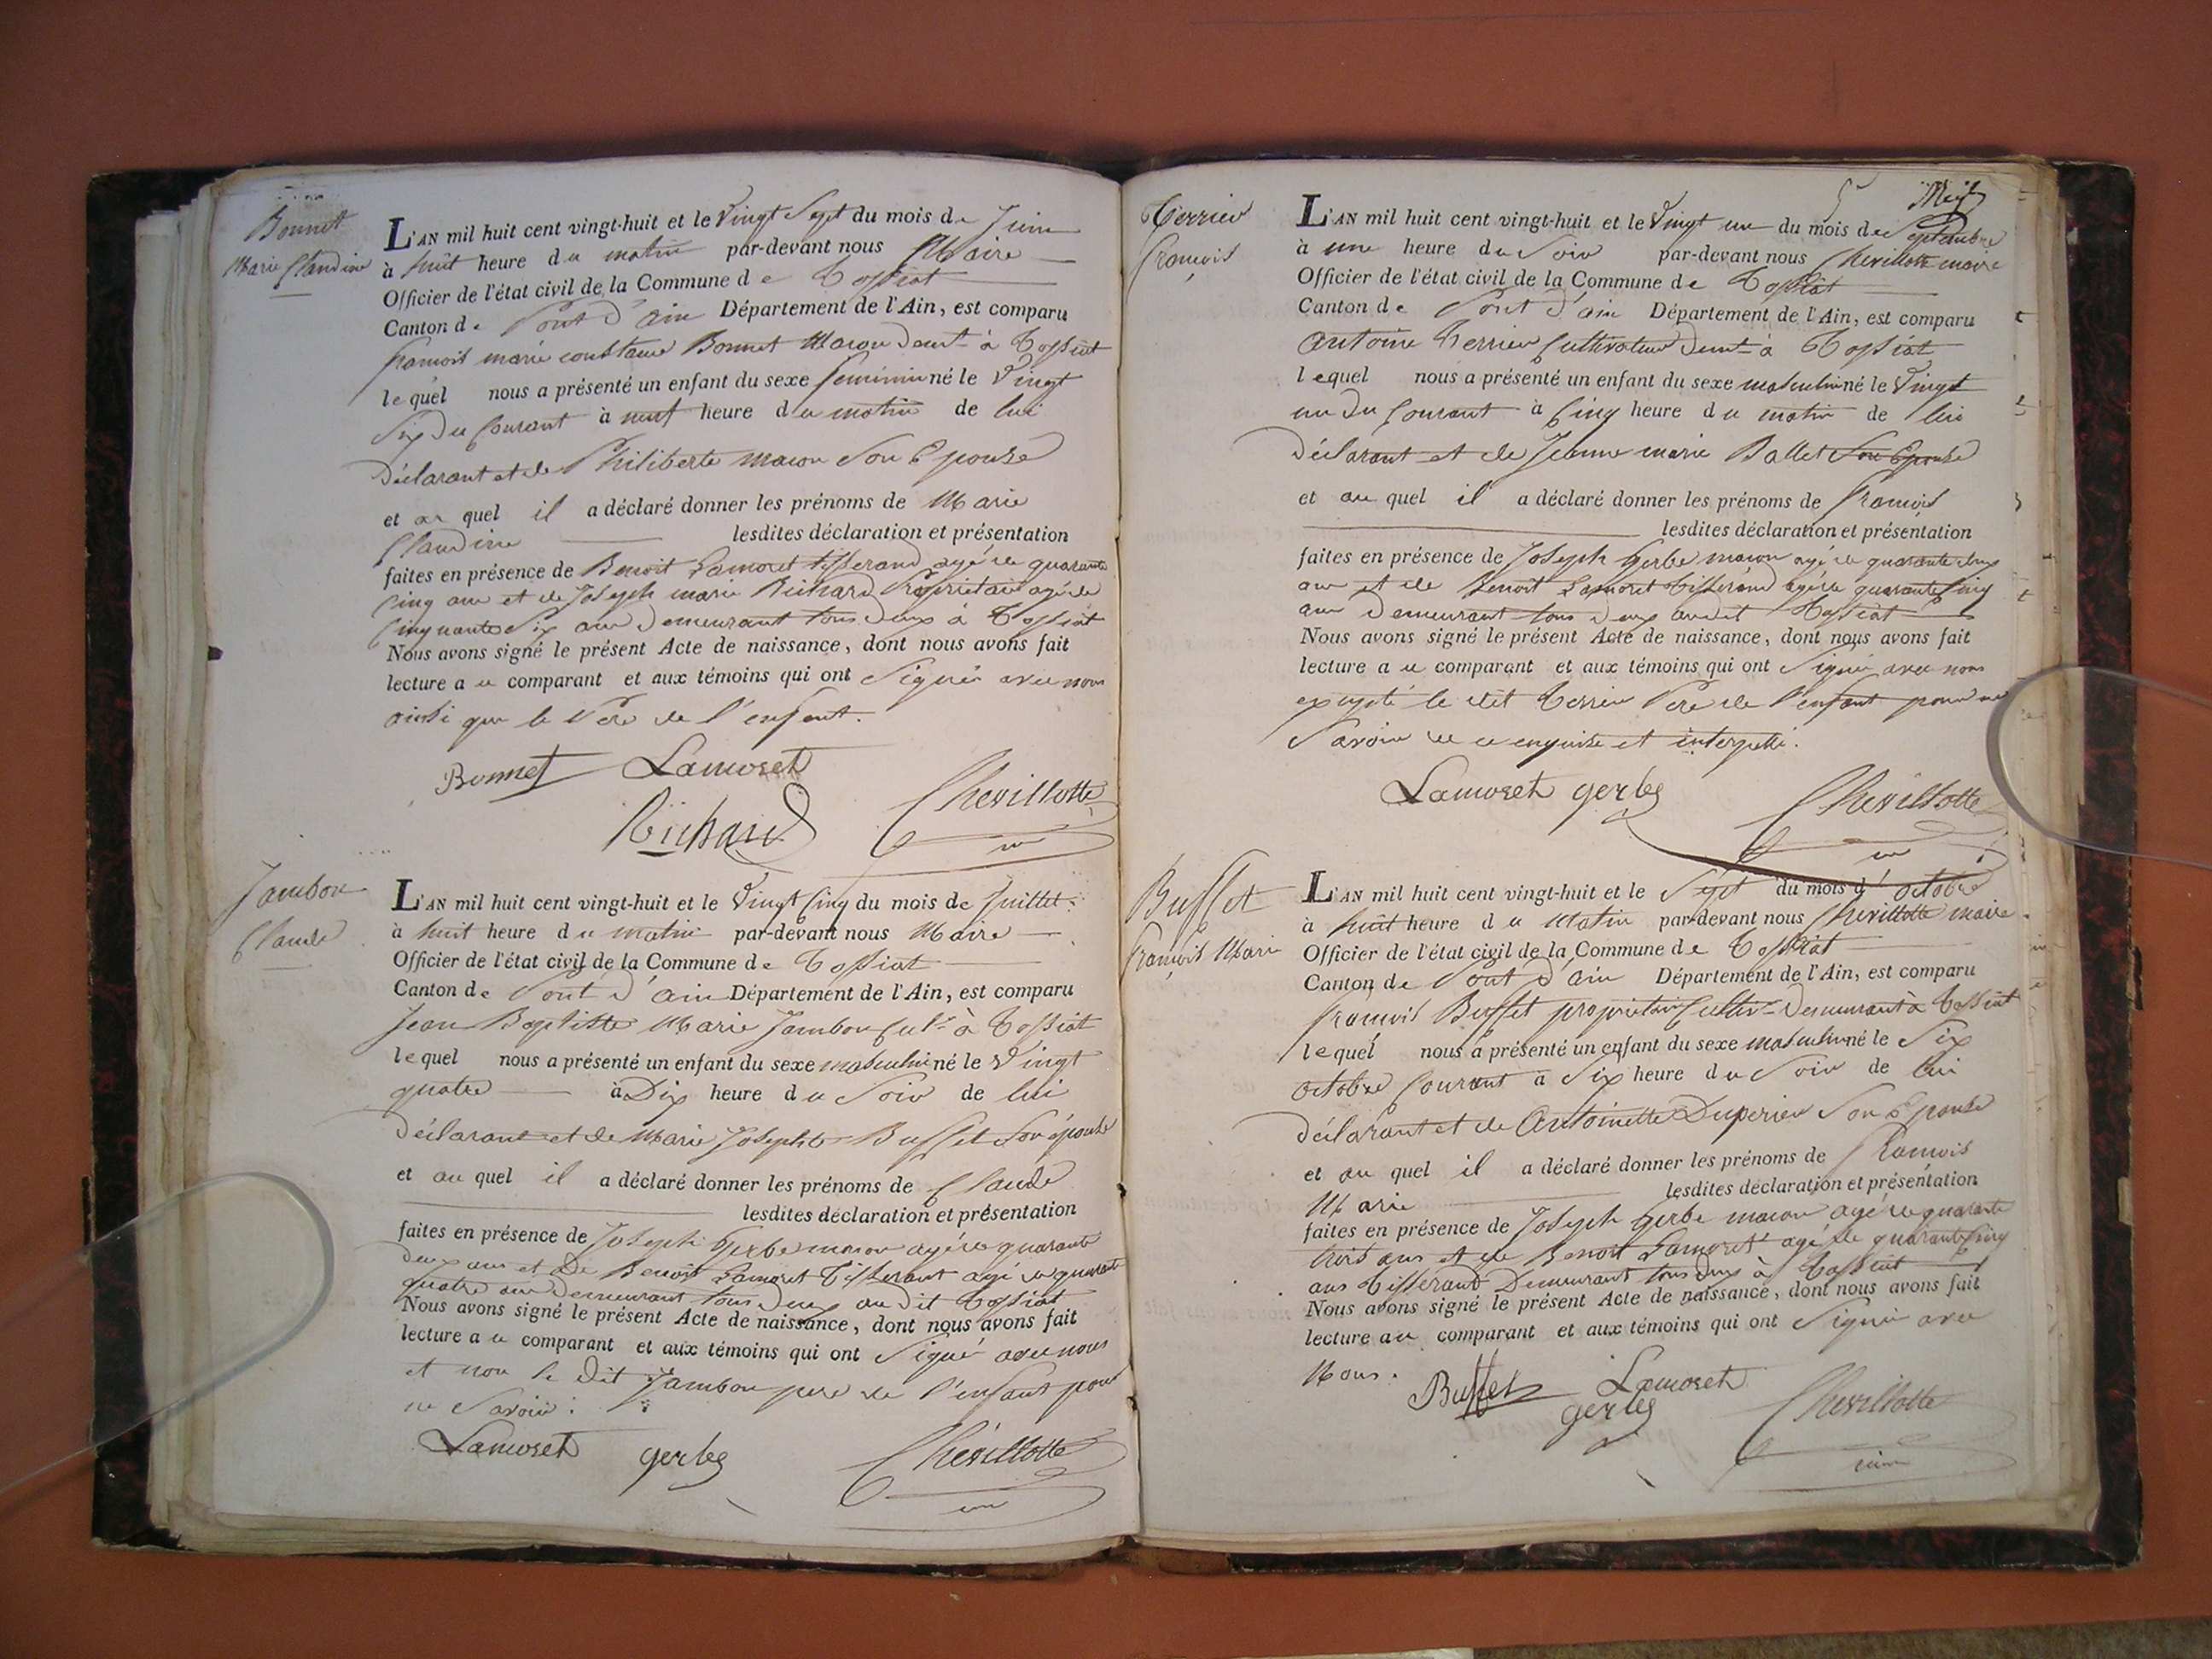 Bonnet
Marie Claudine
L'AN mil huit cent vingt-huit et le Vingt Sept du mois de Juin
à huit heure du matin par-devant nous Maire
Officier de l'état civil de la Commune de Tossiat
Canton de Pont d'ain Département de l'Ain, est comparu
françois marie constance Bonnet Macon demt à Tossiat
lequel nous a présenté un enfant du sexe feminin né le Vingt
Six du Courant à neuf heure du matin de lui
Déclarant et de Philiberte macon Son Epouse
et au quel il a déclaré donner les prénoms de Marie
Claudine lesdites déclaration et présentation
faites en présence de Benoit Lamoret tisserand agé de quarante
Cinq ans et de Joseph marie Richard Propriétaire agé de
Cinquante Six ans demeurant tous deux à Tossiat
Nous avons signé le présent Acte de naissance, dont nous avons fait
lecture au comparant et aux témoins qui ont Signés avec nous
ainsi que le Père de l'enfant.
Bonnet Lamoret
Richard Chevillotte
Jambon
Claude
L'AN mil huit cent vingt-huit et le Vingt Cinq du mois de Juillet
à huit heure du matin par-devant nous Maire
Officier de l'état civil de la Commune de Tossiat
Canton de Pont d'ain Département de l'Ain, est comparu
Jean Baptiste Marie Jambon Culr à Tossiat
lequel nous a présenté un enfant du sexe masculin né le Vingt
quatre à Dix heure du Soir de lui
Déclarant et de Marie Josephte Buffet Son épouse
et au quel il a déclaré donner les prénoms de Claude
lesdites déclaration et présentation
faites en présence de Joseph Gerbe macon agé de quarante
deux ans et De Benoit Lamoret Tisserant agé de quarante
quatre ans demeurant tous deux au dit Tossiat
Nous avons signé le présent Acte de naissance, dont nous avons fait
lecture au comparant et aux témoins qui ont Signé avec nous
et non le dit Jambon pere de l'enfant pour
ne Savoir.
Lamoret gerbe Chevillotte
5
Terrier
François
L'AN mil huit cent vingt-huit et le Vingt un du mois de Septembre
à une heure du Soir par-devant nous Chevillotte maire
Officier de l'état civil de la Commune de Tossiat
Canton de Pont d'ain Département de l'Ain, est comparu
Antoine Terrier Cultivateur demt à Tossiat
lequel nous a présenté un enfant du sexe masculin né le Vingt
un du Courant à Cinq heure du matin de lui
Déclarant et de Jeanne marie Ballet Son Epouse
et au quel il a déclaré donner les prénoms de François
lesdites déclaration et présentation
faites en présence de Joseph Gerbe macon agé de quarante deux
ans et de Benoit Lamoret Tisserand agé de quarante Cinq
ans Demeurant tous deux audit Tossiat
Nous avons signé le présent Acte de naissance, dont nous avons fait
lecture au comparant et aux témoins qui ont Signés avec nous
excepté le dit Terrier Père de l'enfant pour ne
Savoir de ce enquise et interpellé.
Lamoret gerbe Chevillotte
Buffet
François Marie
L'AN mil huit cent vingt-huit et le Sept du mois d'octobre
à huit heure du Matin par-devant nous Chevillotte maire
Officier de l'état civil de la Commune de Tossiat
Canton de Pont d'ain Département de l'Ain, est comparu
François Buffet proprietaire Cultivr Demeurant à Tossiat
lequel nous a présenté un enfant du sexe masculin né le Six
octobre Courant à Six heure du Soir de lui
déclarant et de Antoinette Duperier Son Epouse
et au quel il a déclaré donner les prénoms de François
Marie lesdites déclaration et présentation
faites en présence de Joseph Gerbe macon agé de quarante
trois ans et de Benoit Lamoret agé de quarante Cinq
ans Tisserand Demeurant tous deux à Tossiat
Nous avons signé le présent Acte de naissance, dont nous avons fait
lecture au comparant et aux témoins qui ont Signés avec
Nous.
Buffet Lamoret
gerbe Chevillotte